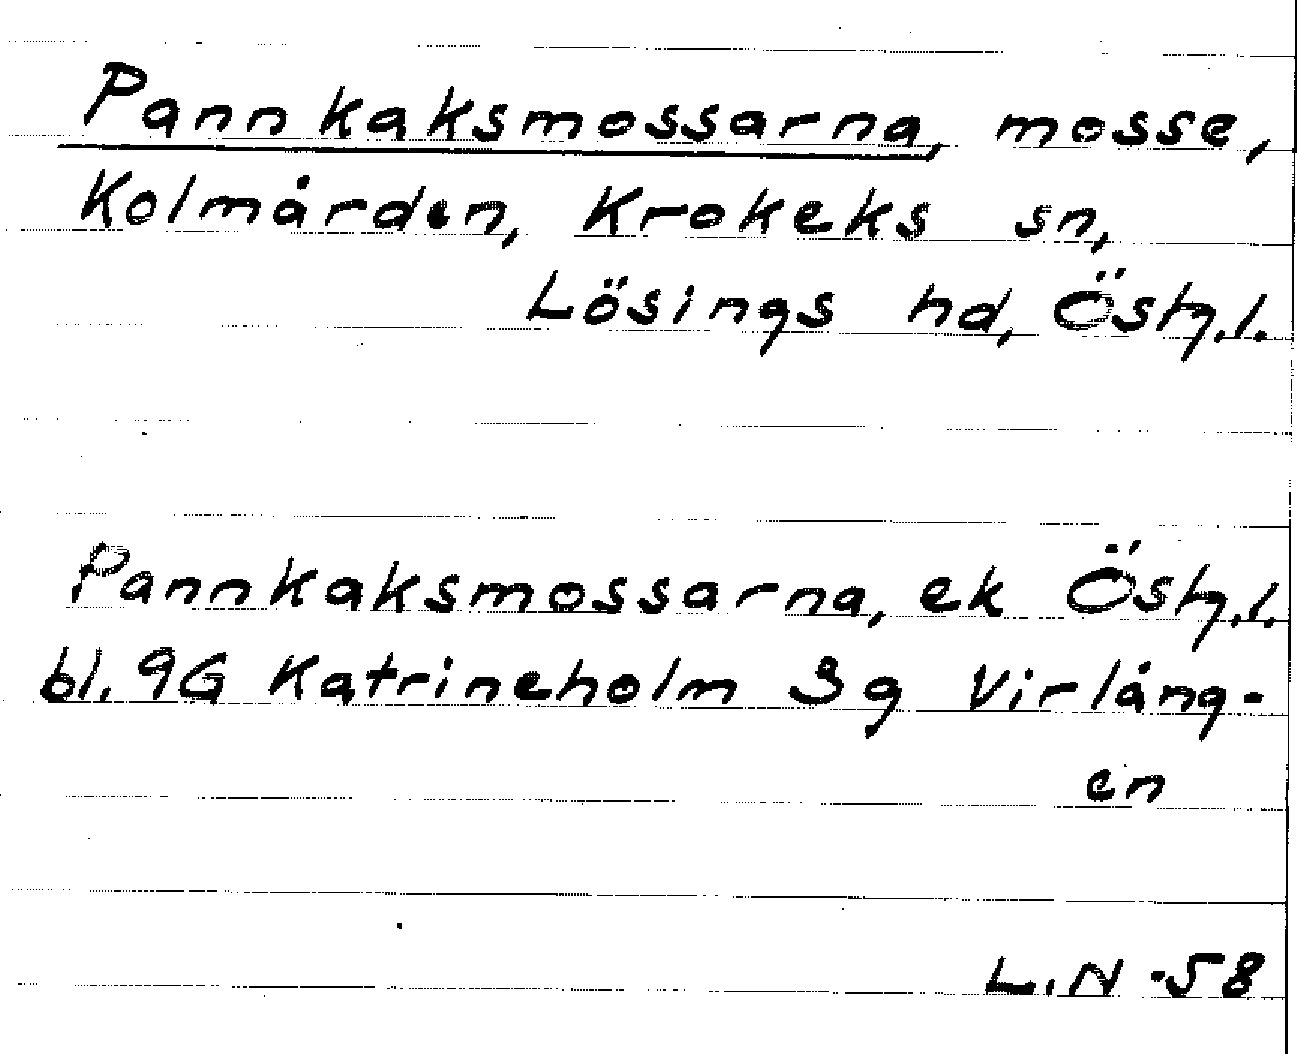 Pannkaksmossarna, mosse,
Kolmården, Krokeks sn,
Lösings hd, Östg.l.
Pannkaksmossarna, ek Östg.l.
bl. 9G Katrineholm 3g Virlång-
en
L.N -58